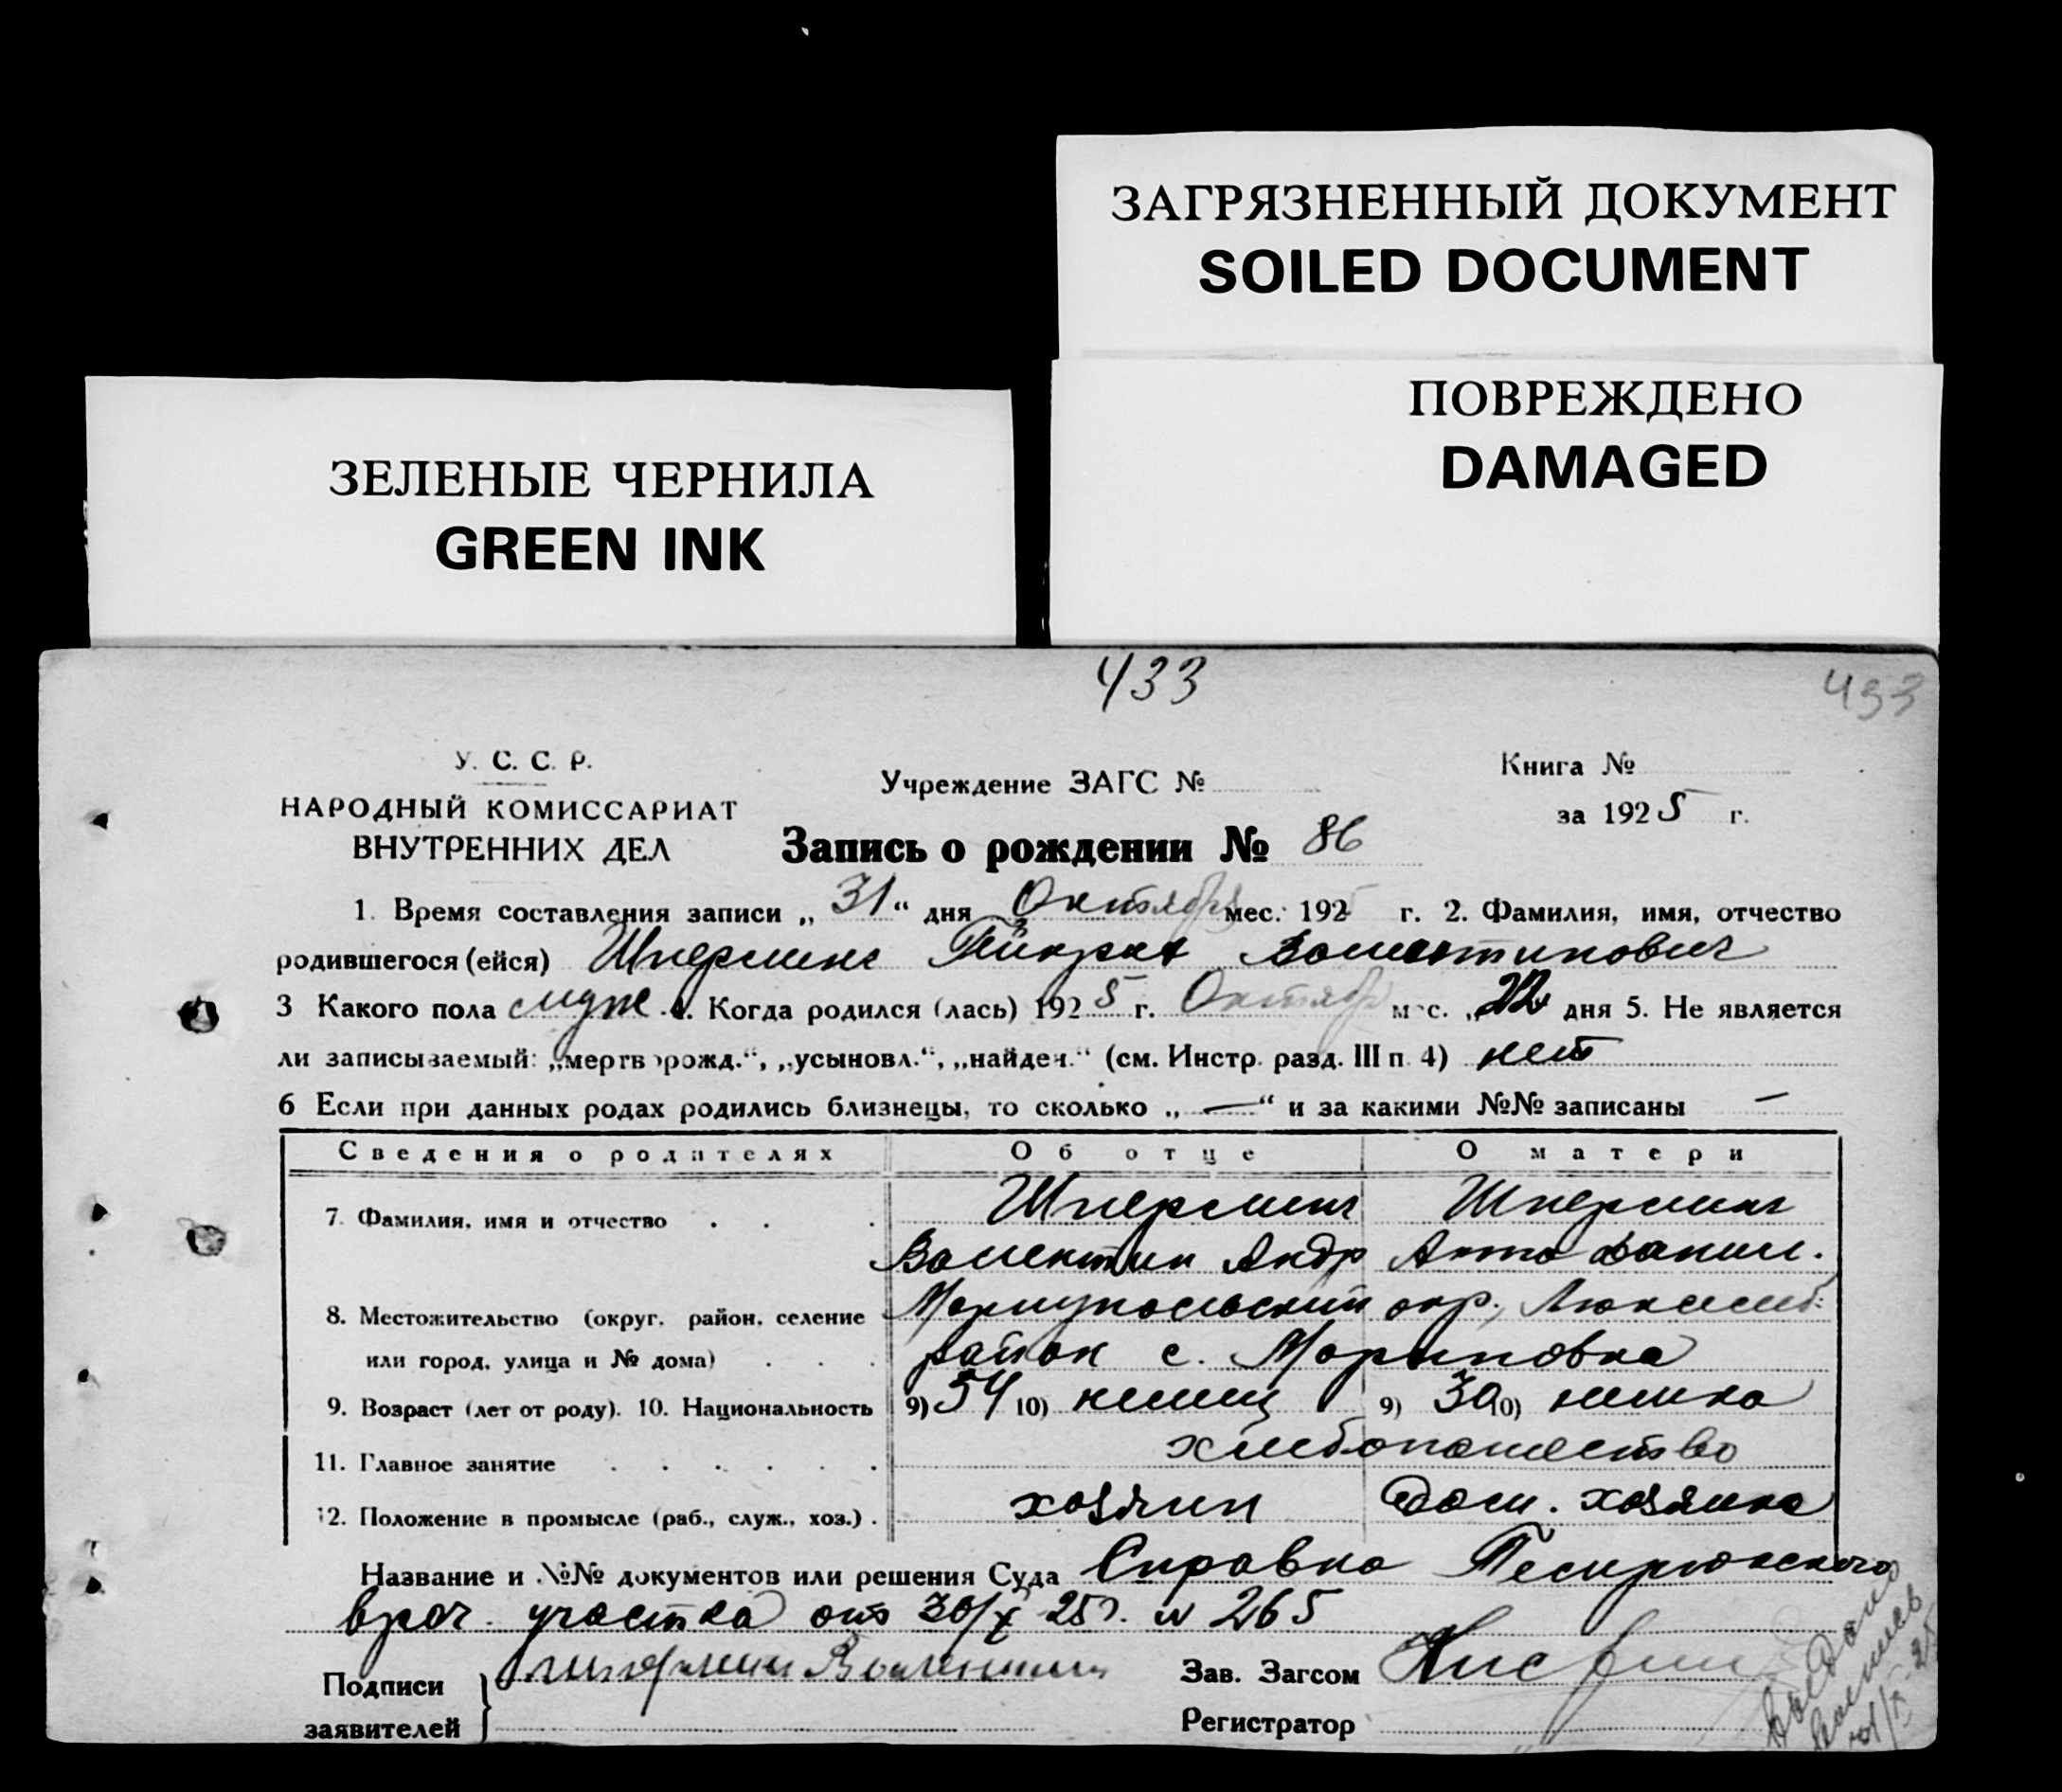 ЗАГРЯЗНЕННЫЙ ДОКУМЕНТ
SOILED DOCUMENT
ПОВРЕЖДЕНО
DAMAGED
ЗЕЛЕНЫЕ ЧЕРНИЛА
GREEN INK
433
433
У. С. С. Р.
НАРОДНЫЙ КОМИССАРИАТ
ВНУТРЕННИХ ДЕЛ
Учреждение ЗАГС №
Книга №
за 1925 г.
Запись о рождении № 86
1. Время составления записи „31“ дня Октября мес. 192 г. 2. Фамилия, имя, отчество
родившегося (ейся) Шперлинг Валентинович
3 Какого пола муж 4. Когда родился (лась) 1925 г. Октябр мес. „22 дня 5. Не является
ли записываемый: „мертворожд.“, „усыновл.“, „найден.“ (см. Инстр. разд. III п. 4) нет
6 Если при данных родах родились близнецы, то сколько „—“ и за какими №№ записаны —
Сведения о родителях Об отце О матери
7. Фамилия, имя и отчество Шперлинг Шперлинг
Валентин Андр Анна Данил.
8. Местожительство (округ, район, селение Мариупольский окр., Люксемб.
или город, улица и № дома) район с. Мариновка
9. Возраст (лет от роду). 10. Национальность 9) 34 10) немец 9) 30 10) немка
11. Главное занятие хлебопашество
12. Положение в промысле (раб., служ., хоз.) хозяин Дом. хозяйка
Название и №№ документов или решения Суда Справка
врач. участка от 30/X 25г. № 265
Подписи
заявителей
Зав. Загсом
Регистратор